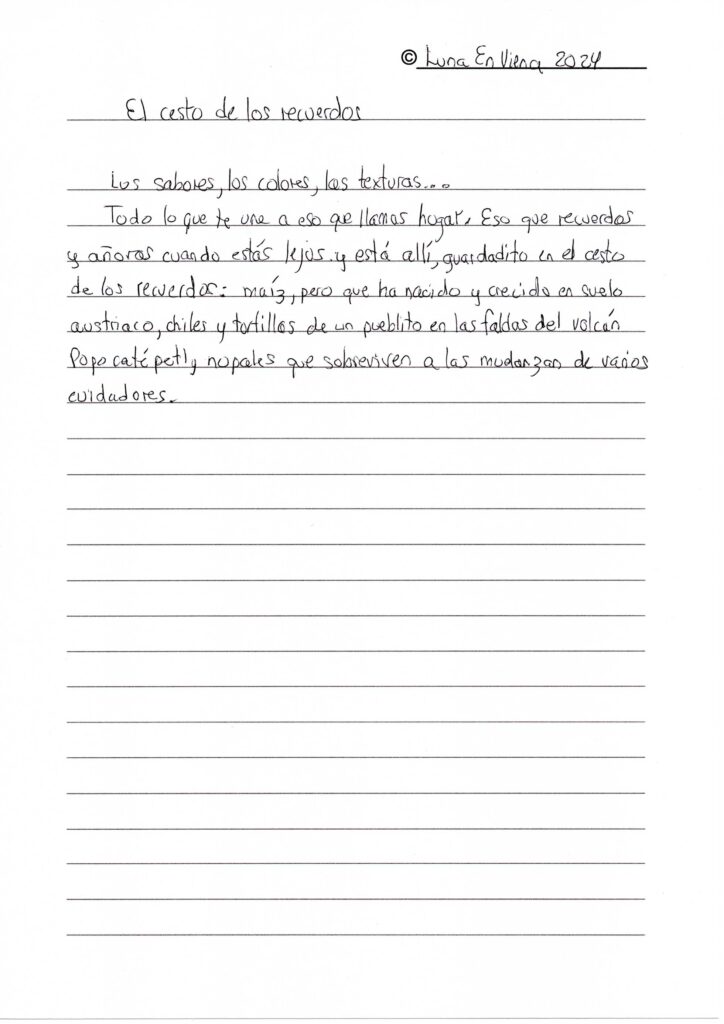 © Luna En Viena 2024
El cesto de los recuerdos
Los sabores, los colores, las texturas...
Todo lo que te une a eso que llamas hogar. Eso que recuerdas
y añoras cuando estás lejos y está allí, guardadito en el cesto
de los recuerdos: maíz, pero que ha nacido y crecido en suelo
austriaco, chiles y tortillas de un pueblito en las faldas del volcán
Popocatépetl y nopales que sobreviven a las mudanzan de varios
cuidadores.